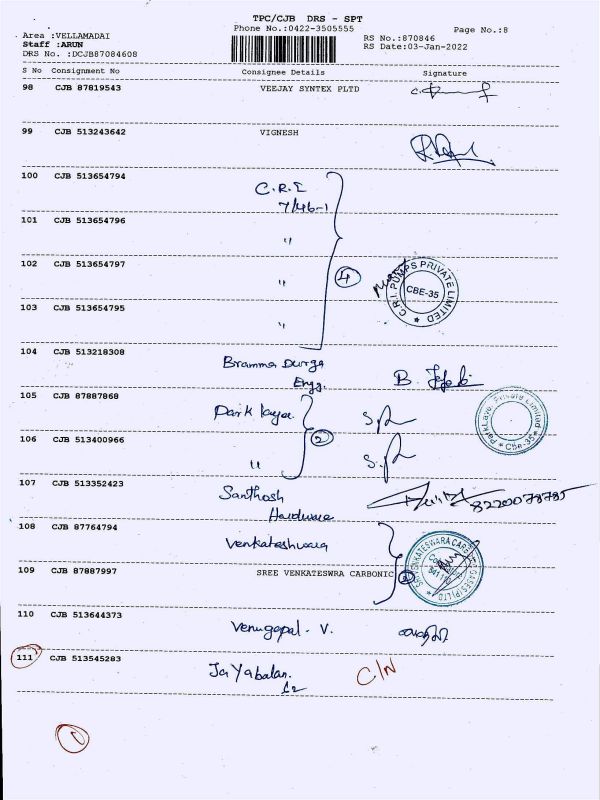 TPC/CJB DRS - SPT
Phone No.:0422-3505555
Page No.:8
Area :VELLAMADAI
Staff :ARUN
DRS No. :DCJB87084608
RS No.:870846
RS Date:03-Jan-2022
S No Consignment No Consignee Details Signature
98 CJB 87819543 VEEJAY SYNTEX PLTD
99 CJB 513243642 VIGNESH
100 CJB 513654794 C.R.I
7/46-1
101 CJB 513654796 "
102 CJB 513654797 " 4
C.R.I. PUMPS PRIVATE LIMITED
CBE-35
103 CJB 513654795 "
104 CJB 513218308 Bramma Durga
Engg.
105 CJB 87887868 Park layer
ParkLayer Private Limited
Cbe-35
106 CJB 513400966 " 2
107 CJB 513352423 Santhosh
Hardware
8220078785
108 CJB 87764794 Venkateshwara
109 CJB 87887997 SREE VENKATESWRA CARBONIC
110 CJB 513644373 Venugopal. V.
111 CJB 513545283 Jayabalan. C/N
1